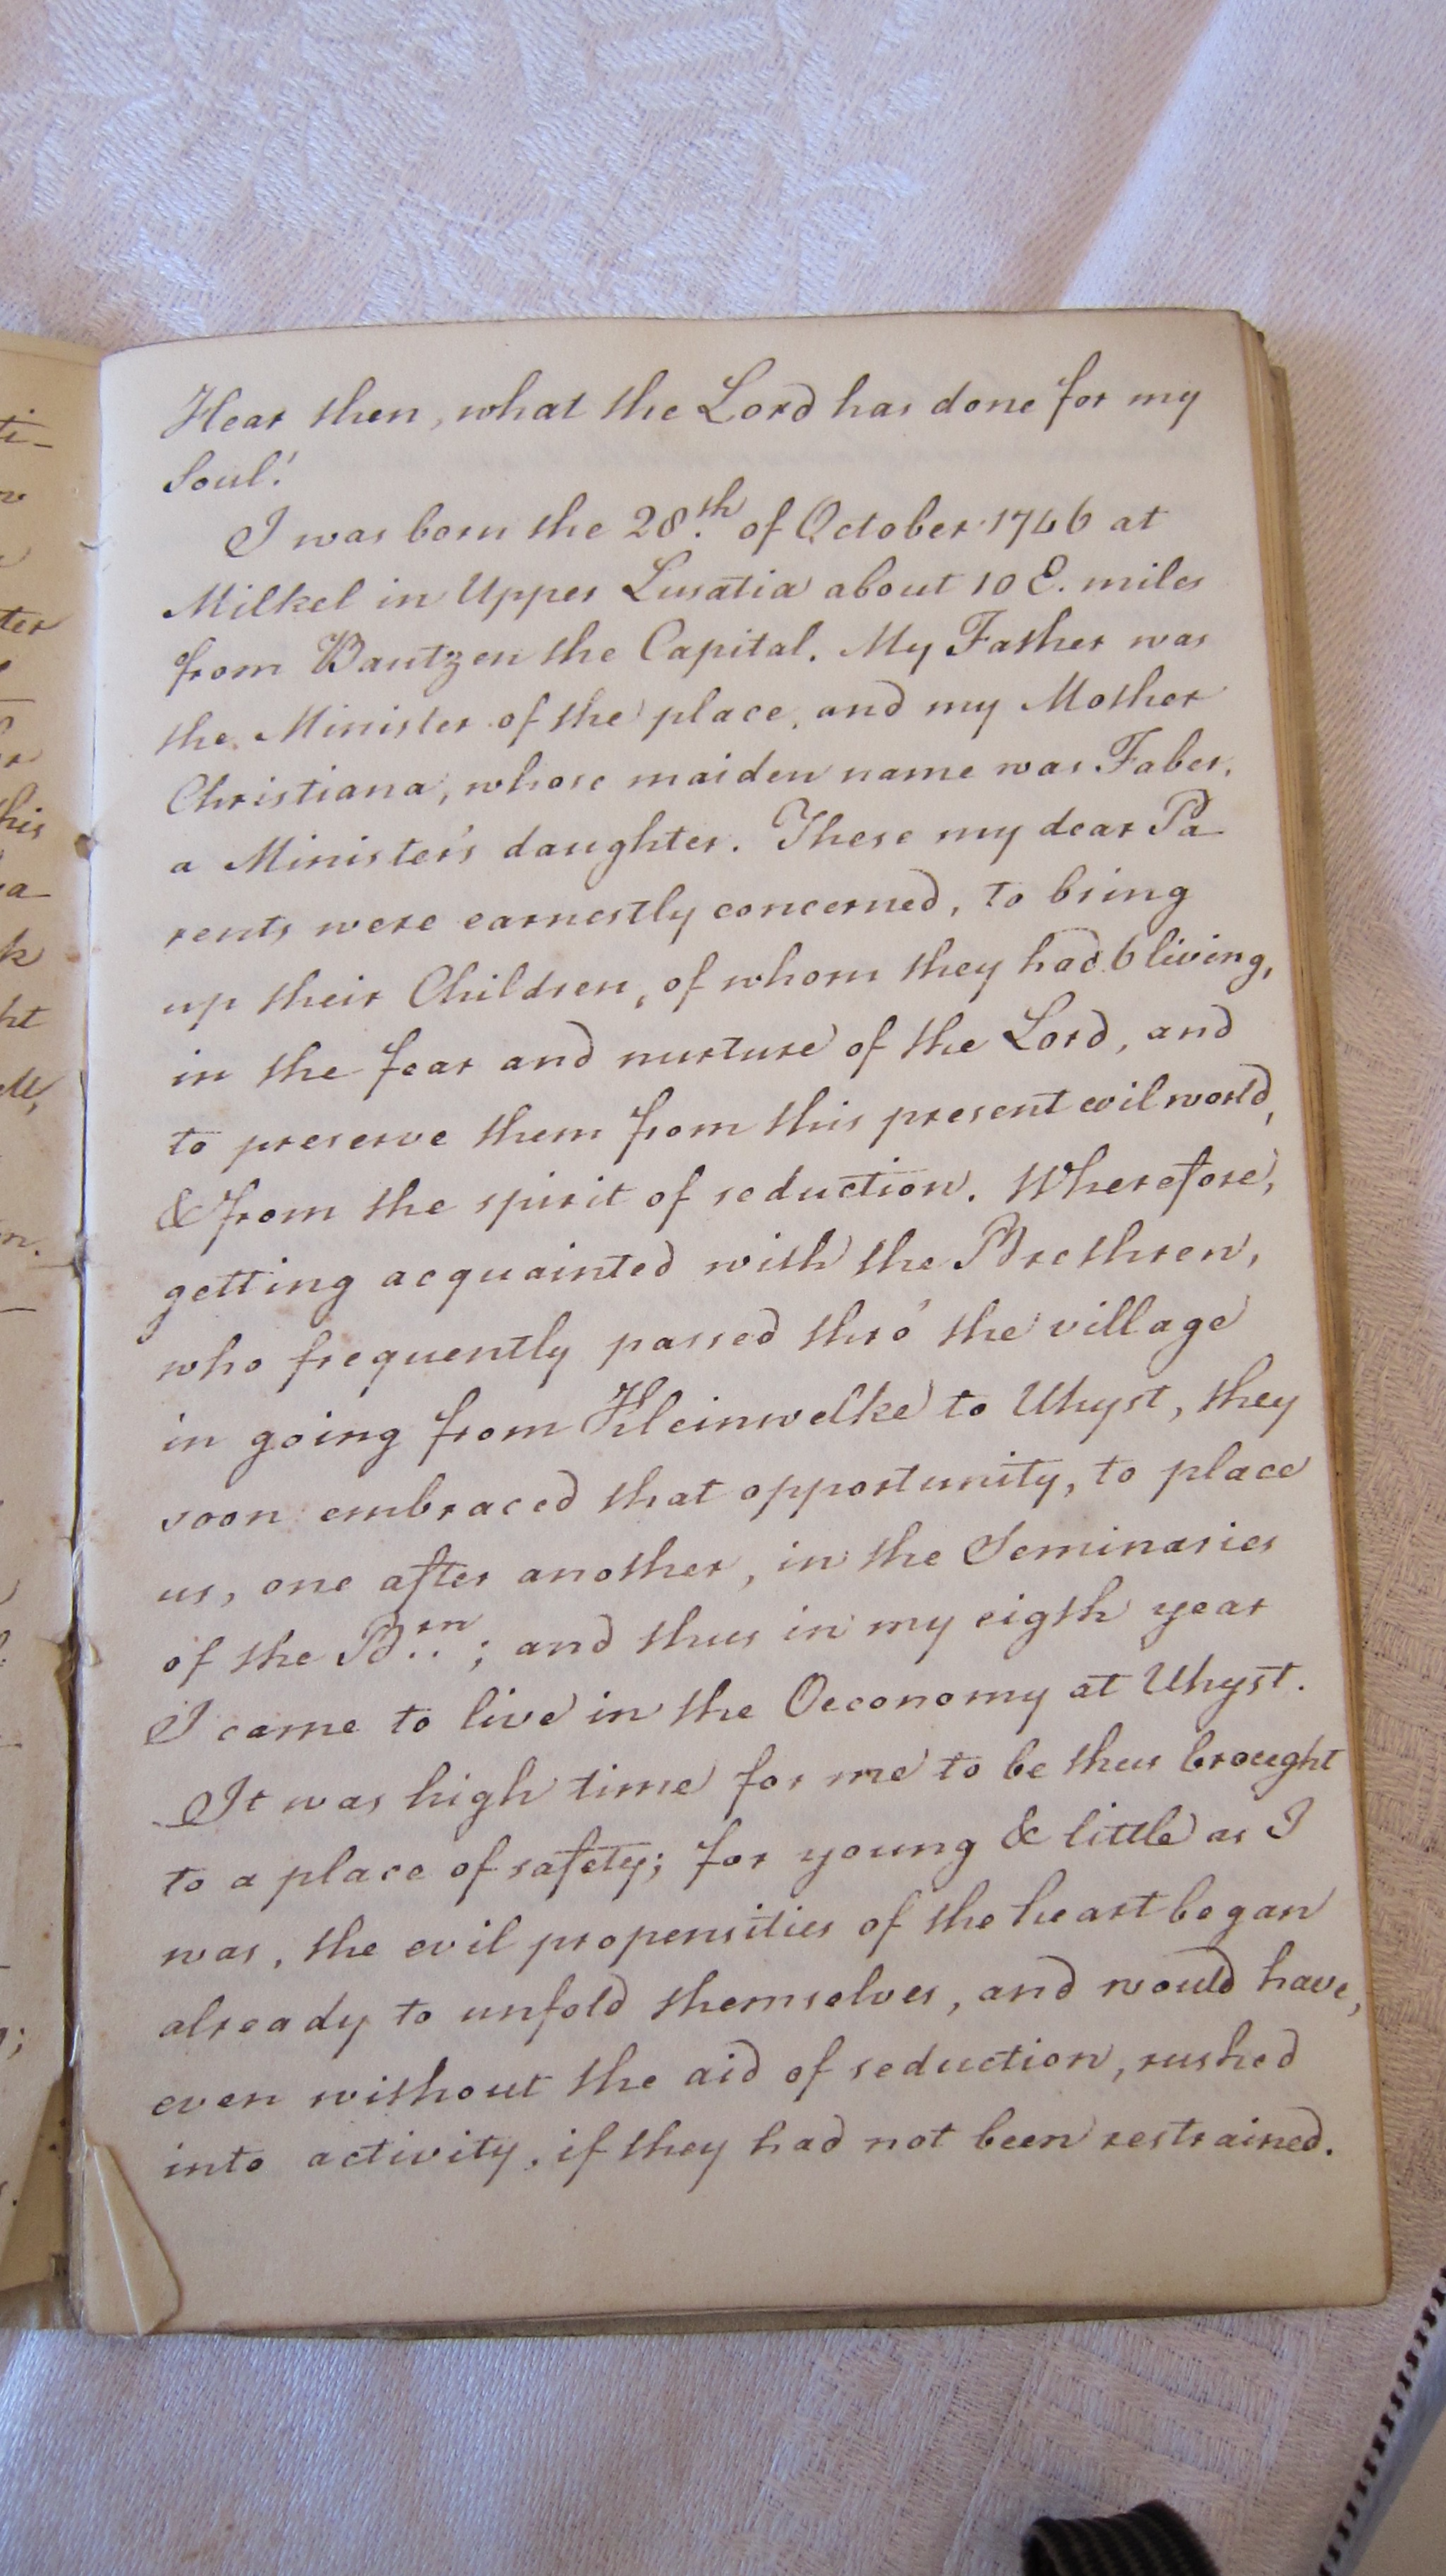 Hear then, what the Lord has done for my
Soul!
I was born the 28.th of October 1746 at
Milkel in Upper Lusatia about 10 E. miles
from Bautzen the Capital. My Father was
the Minister of the place, and my Mother
Christiana, whose maiden name was Faber,
a Minister's daughter. These my dear Pa-
rents were earnestly concerned, to bring
up their Children, of whom they had 6 living,
in the fear and nurture of the Lord, and
to preserve them from this present evil world,
& from the spirit of seduction. Wherefore,
getting acquainted with the Brethren,
who frequently passed thro' the village
in going from Kleinwelke to Uhyst, they
soon embraced that opportunity, to place
us, one after another, in the Seminaries
of the B..rn; and thus in my eigth year
I came to live in the Oeconomy at Uhyst.
It was high time for me to be thus brought
to a place of safety; for young & little as I
was, the evil propensities of the heart began
already to unfold themselves, and would have,
even without the aid of seduction, rushed
into activity, if they had not been restrained.